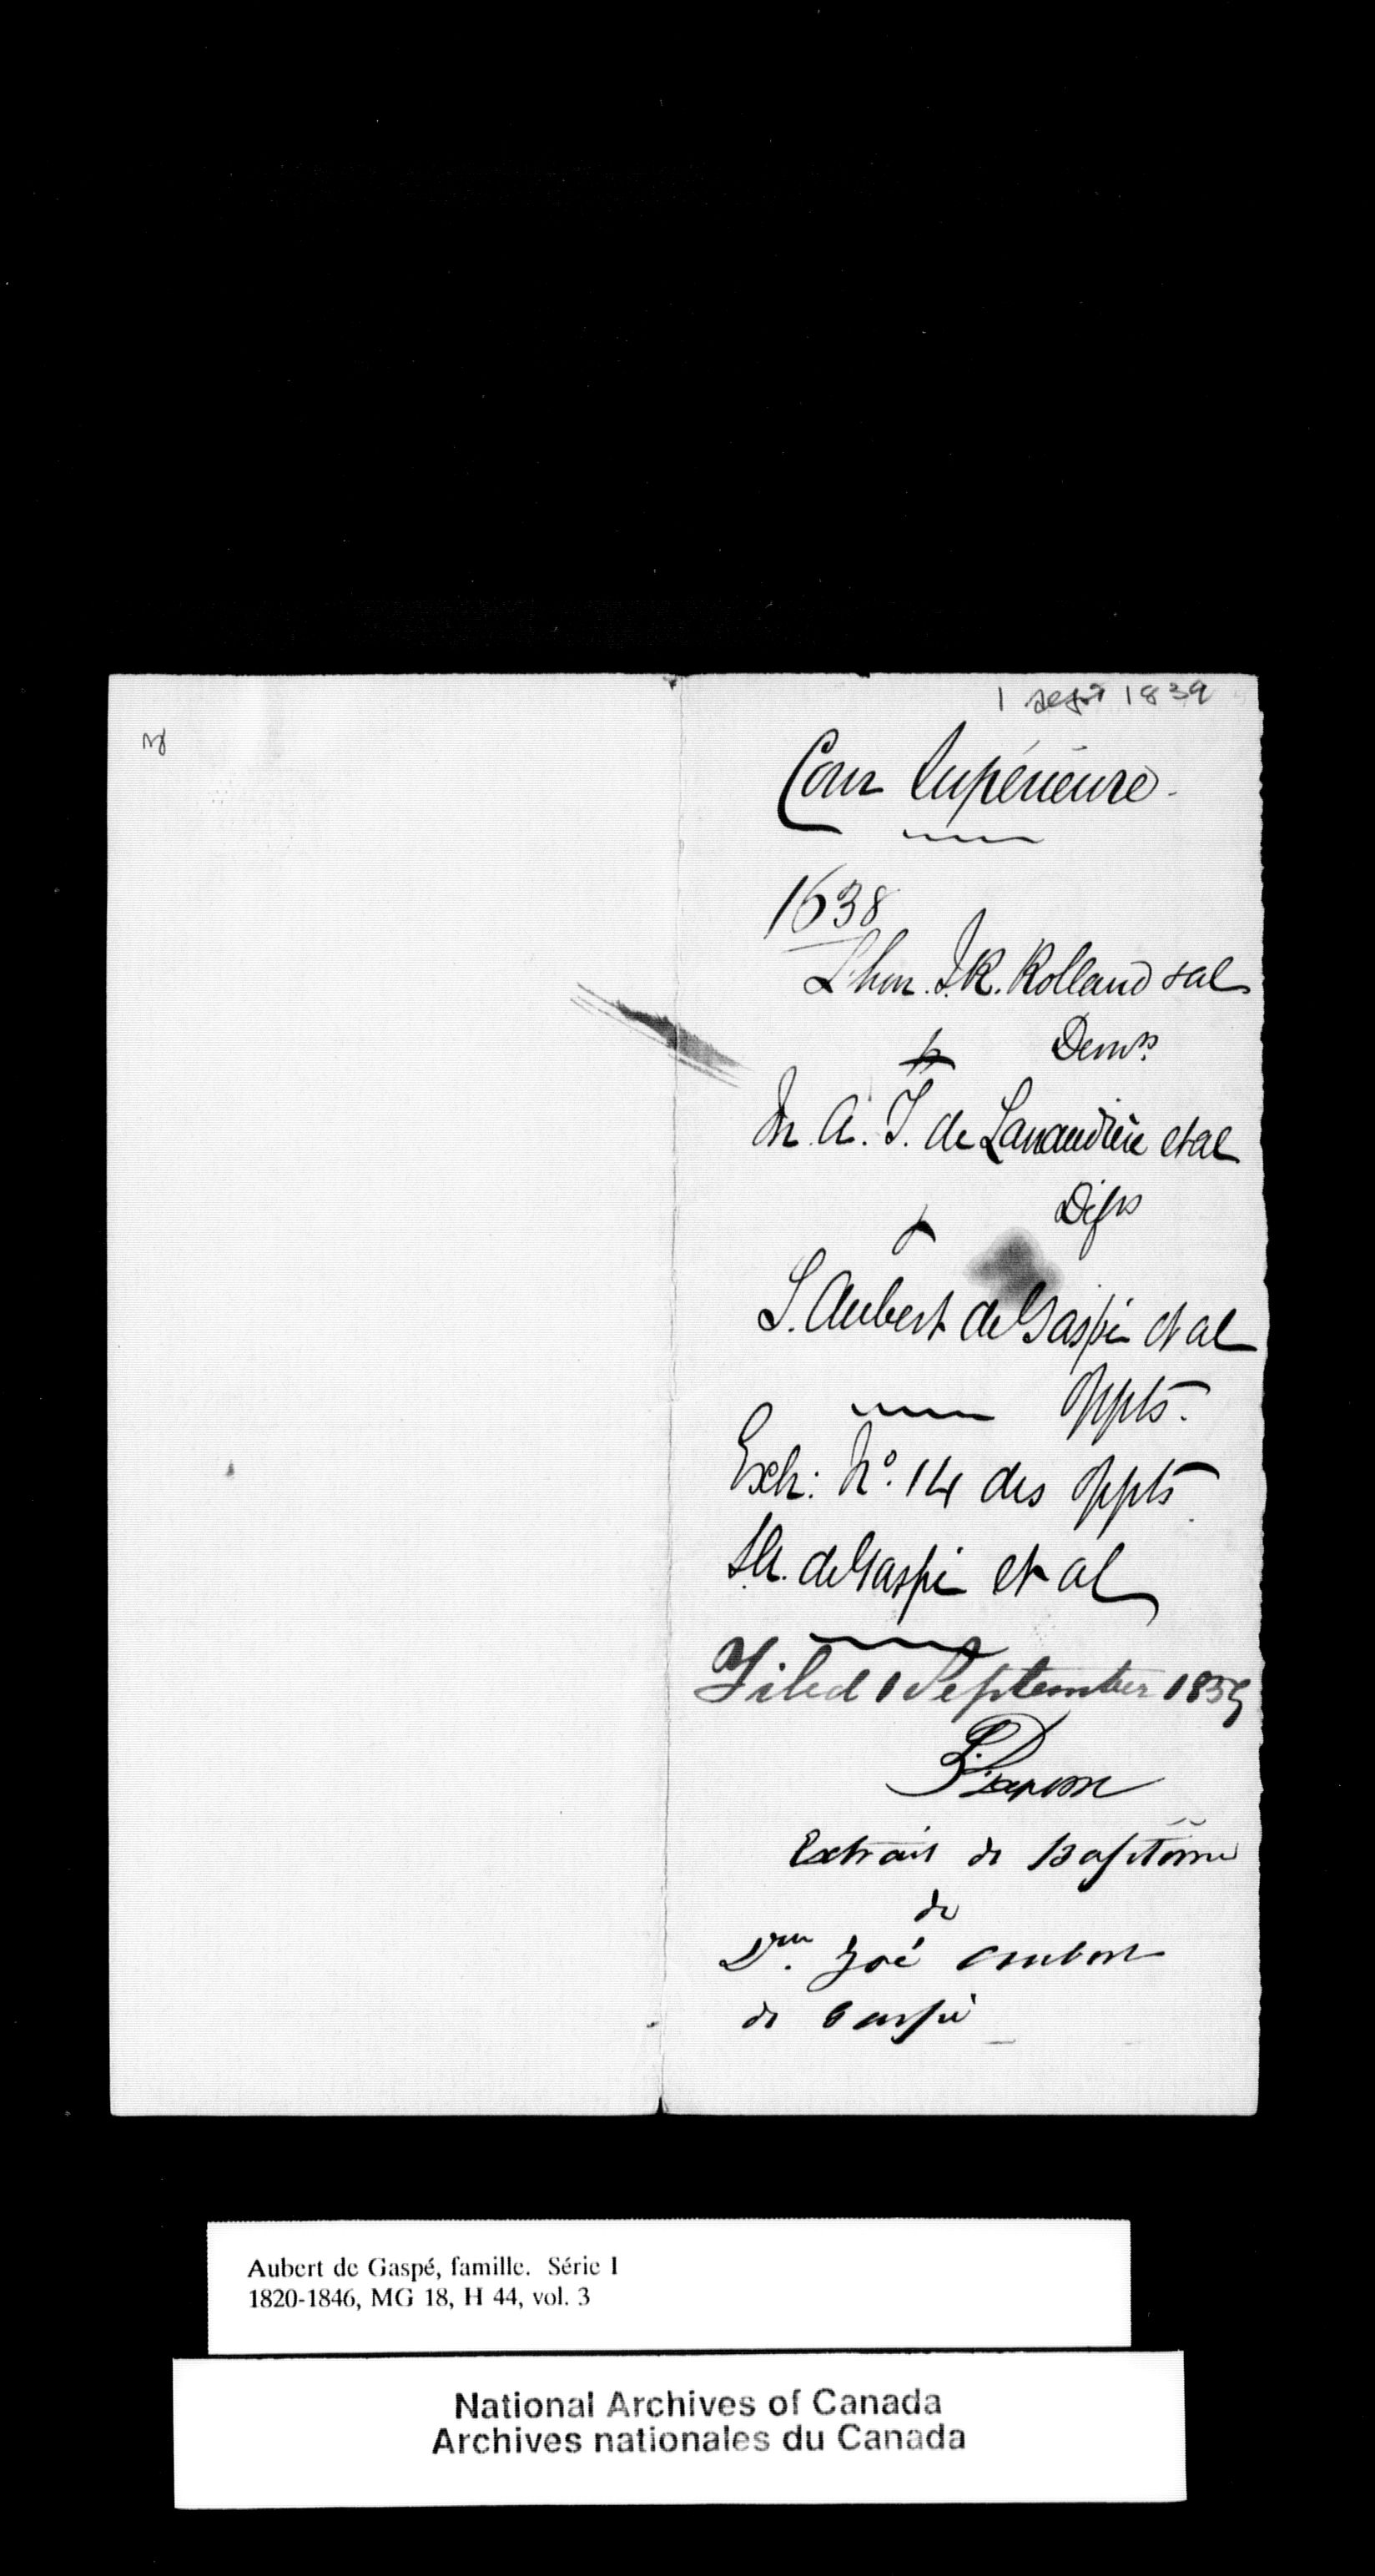 1 sept 1839
Cour Supérieure.
1638
L'hon. J. R. Rolland & al
Demrs.
vs
M. A. T. de Lanaudière et al
Défrs
&
S. Aubert de Gaspé et al
Oppts.
Exh: No. 14 des Oppts
S.A. de Gaspé et al
Filed 1 September 1859
Extrait de Baptême
de
Dme. Zoé Aubert
de Gaspé
Aubert de Gaspé, famille. Série I
1820-1846, MG 18, H 44, vol. 3
National Archives of Canada
Archives nationales du Canada